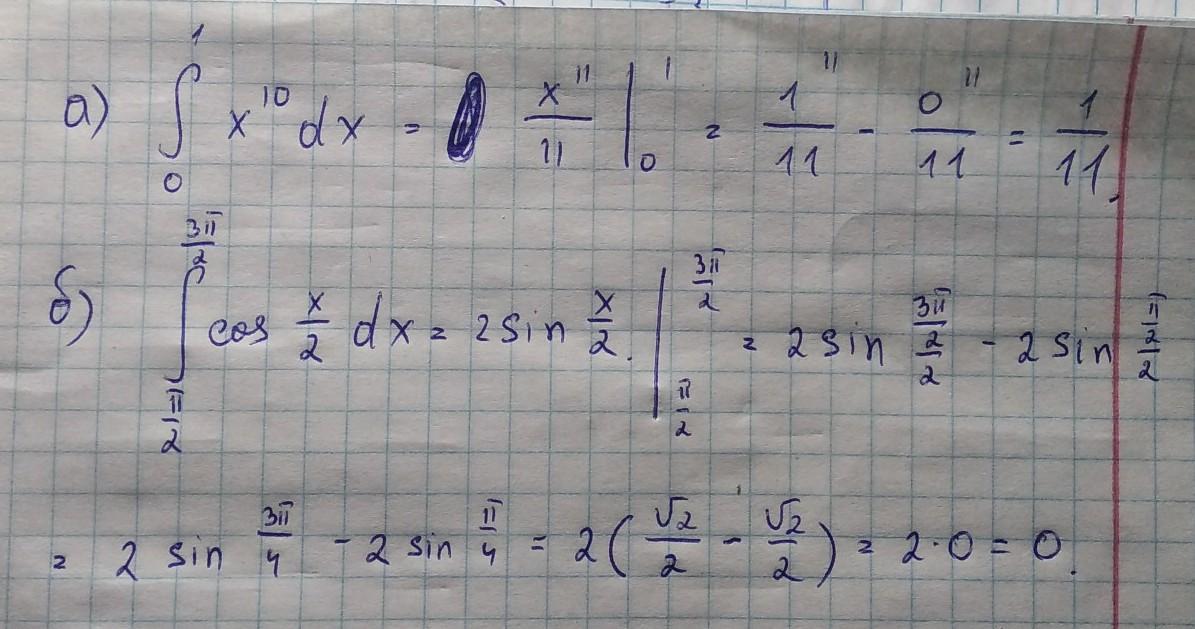 а) ∫₀¹ x¹⁰ dx = x¹¹/11 |₀¹ = 1¹¹/11 - 0¹¹/11 = 1/11.
б) ∫_{π/2}^{3π/2} cos x/2 dx = 2 sin x/2 |_{π/2}^{3π/2} = 2 sin (3π/2)/2 - 2 sin (π/2)/2
= 2 sin 3π/4 - 2 sin π/4 = 2(√2/2 - √2/2) = 2·0 = 0.